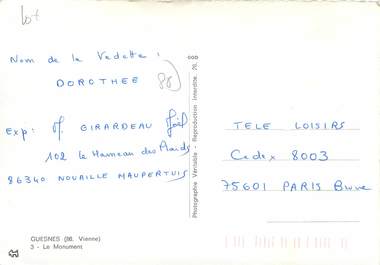 Lot
Nom de la Vedette :
DOROTHEE
86
Exp : M. GIRARDEAU Joël
102 le Hameau des Plaids
86340 NOUAILLE MAUPERTUIS
TELE LOISIRS
Cedex 8003
75601 PARIS Brune
Photographie Véritable - Reproduction Interdite.
GUESNES (86. Vienne)
3 - Le Monument